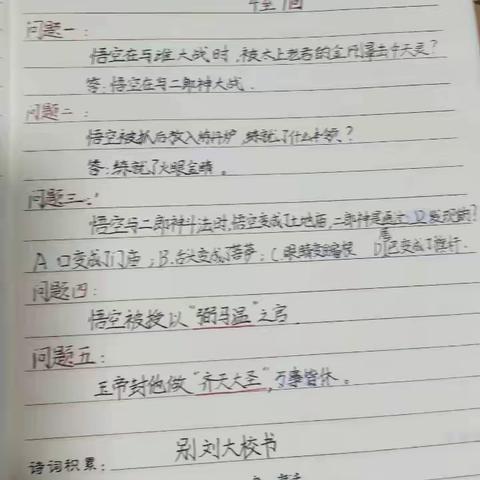 问题一:
悟空在与谁大战时,被太上老君的金刚罩击中天灵?
答:悟空在与二郎神大战.
问题二:
悟空被抓后放入炼丹炉,练就了什么本领?
答:练就了火眼金睛。
问题三:
悟空与二郎神斗法时,悟空变成了土地庙,二郎神是通过 D 发现的?
A 口变成了门庙;B.舌头变成了菩萨;C 眼睛变 D 尾巴变成了旗杆.
问题四:
悟空被授以“弼马温”之官
问题五:
玉帝封他做“齐天大圣”,万事皆休。
别刘大校书
诗词积累: